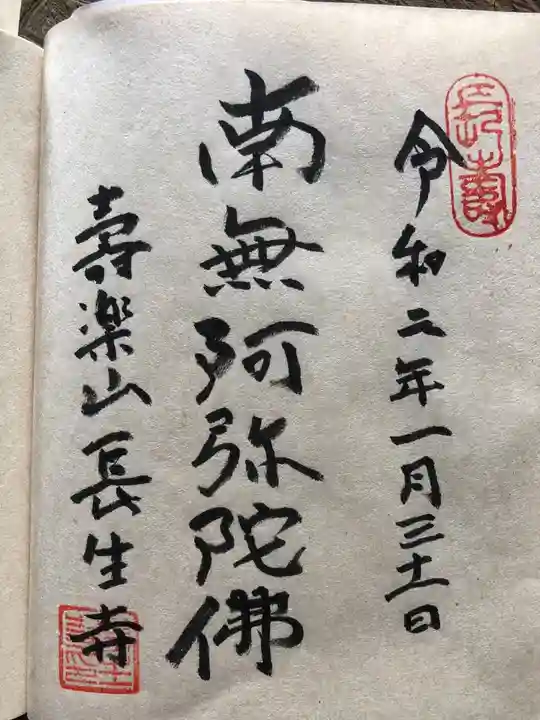 長壽
令和二年一月三十一日
南無阿弥陀佛
壽楽山長生寺